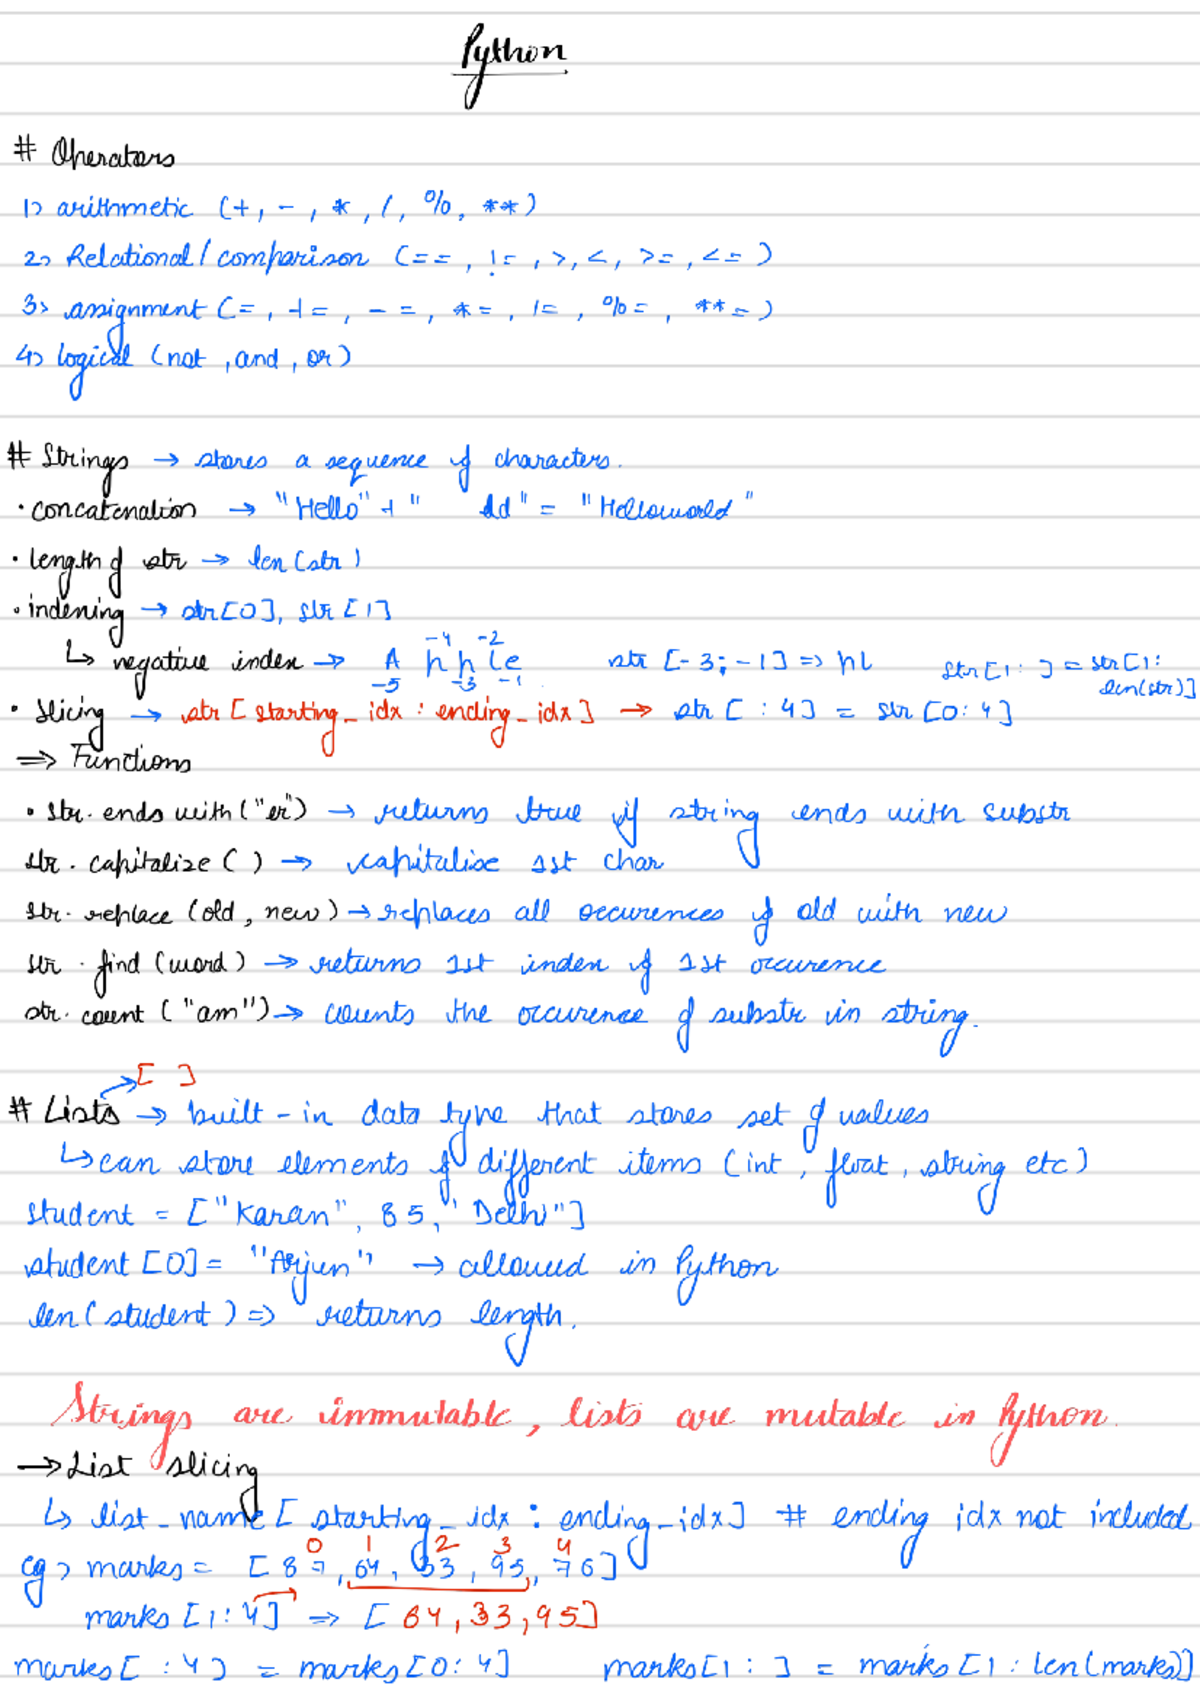 Python
# Operators
1) arithmetic (+, -, *, /, %, **)
2) Relational / comparison (==, !=, >, <, >=, <=)
3) assignment (=, +=, -=, *=, /=, %=, **=)
4) logical (not, and, or)
# Strings → stores a sequence of characters.
· concatenation → "Hello" + " ld" = "Helloworld"
· length of str → len(str)
· indexing → str[0], str[1]
-4 -2
↳ negative index → A p p l e str [-3:-1] => pl str[1: ] = str[1:
-5 -3 -1 len(str)]
· Slicing → str [starting_idx : ending_idx] → str [ : 4] = str [0:4]
=> Functions
· str. ends with ("er") → returns true if string ends with substr
str. capitalize ( ) → capitalise 1st char
str. replace (old, new) → replaces all occurences of old with new
str. find (word) → returns 1st index of 1st occurence
str. count ("am") → counts the occurence of substr in string.
→ [ ]
# Lists → built-in data type that stores set of values
↳ can store elements of different items (int, float, string etc)
student = ["Karan", 85, "Delhi"]
student [0] = "Arjun" → allowed in Python
len(student) => returns length.
Strings are immutable, lists are mutable in Python.
→ List slicing
↳ list_name [ starting_idx : ending_idx] # ending idx not included
0 1 2 3 4
eg > marks = [87, 64, 33, 95, 76]
marks [1:4] => [64, 33, 95]
marks [ :4] = marks [0:4] marks [1: ] = marks [1: len(marks)]